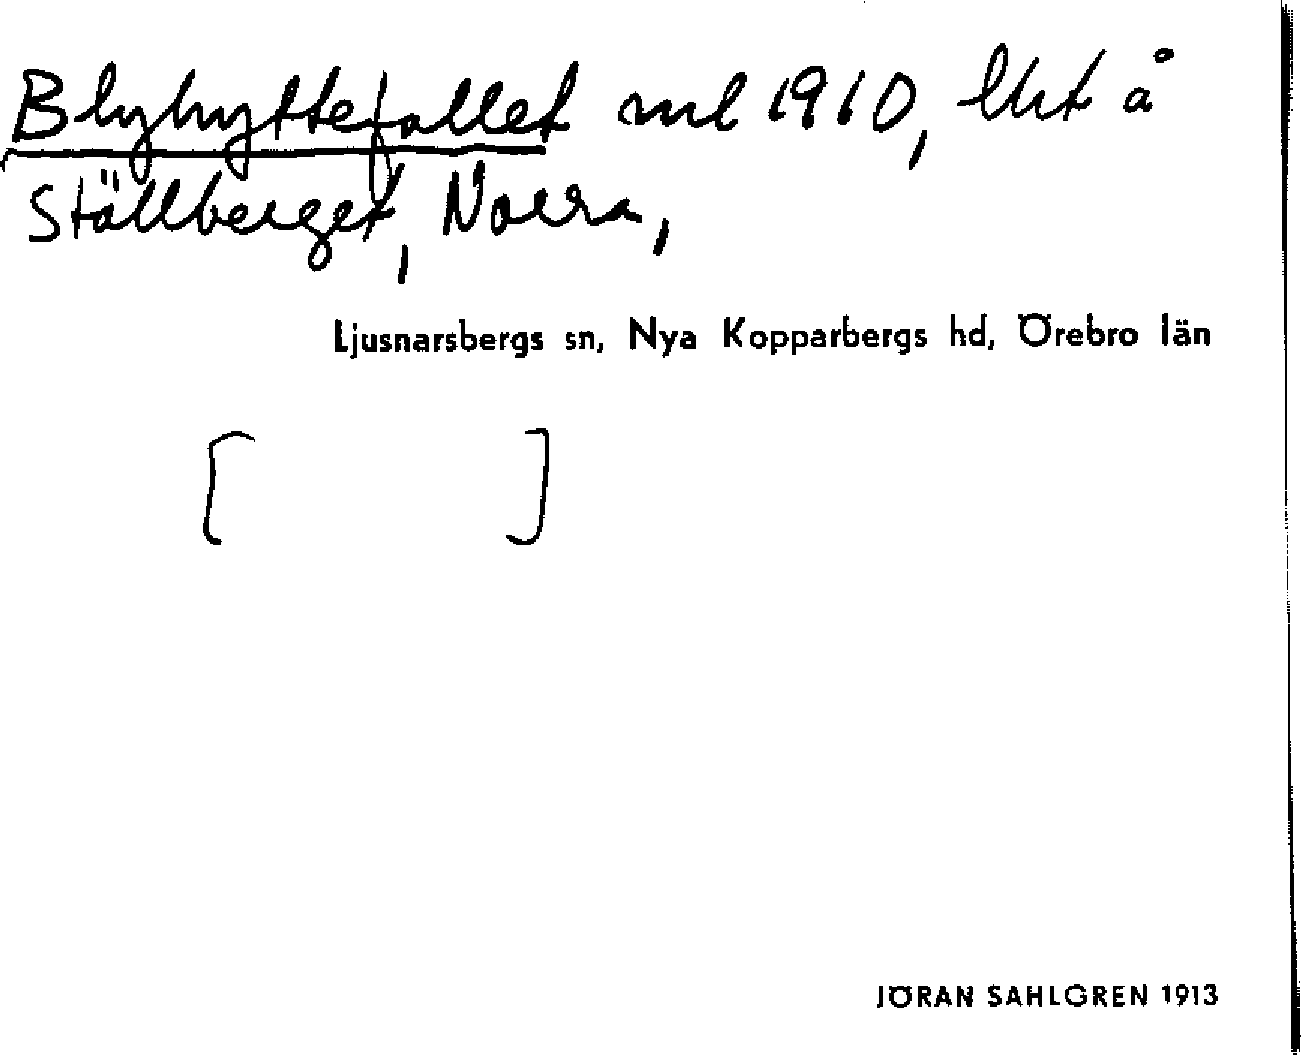 Blyhyttefallet ml 1910, lht å
Ställberget, Norra,
Ljusnarsbergs sn, Nya Kopparbergs hd, Örebro län
[ ]
JÖRAN SAHLGREN 1913